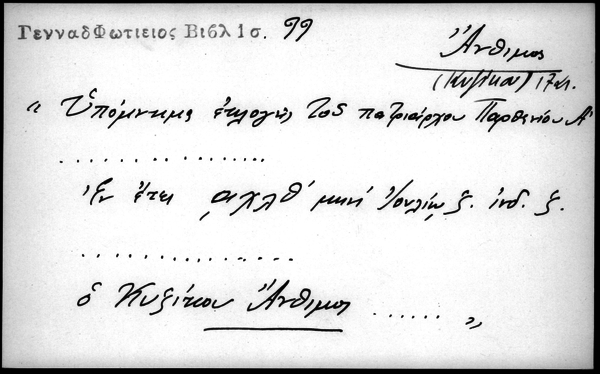 ΓενναδΦωτιειος Βιβλ 1σ. 99
Ἄνθιμος
(Κυζίκου) 17 αι.
“ Ὑπόμνημα ἐκλογῆς τοῦ πατριάρχου Παρθενίου Α'
. . . . . . . . . . . . . . . .
ἐν ἔτει ͵αχλθ' μηνὶ Ἰουλίῳ ζ. ἰνδ. ζ.
. . . . . . . . . . . . . . . .
ὁ Κυζίκου Ἄνθιμος . . . . . . „